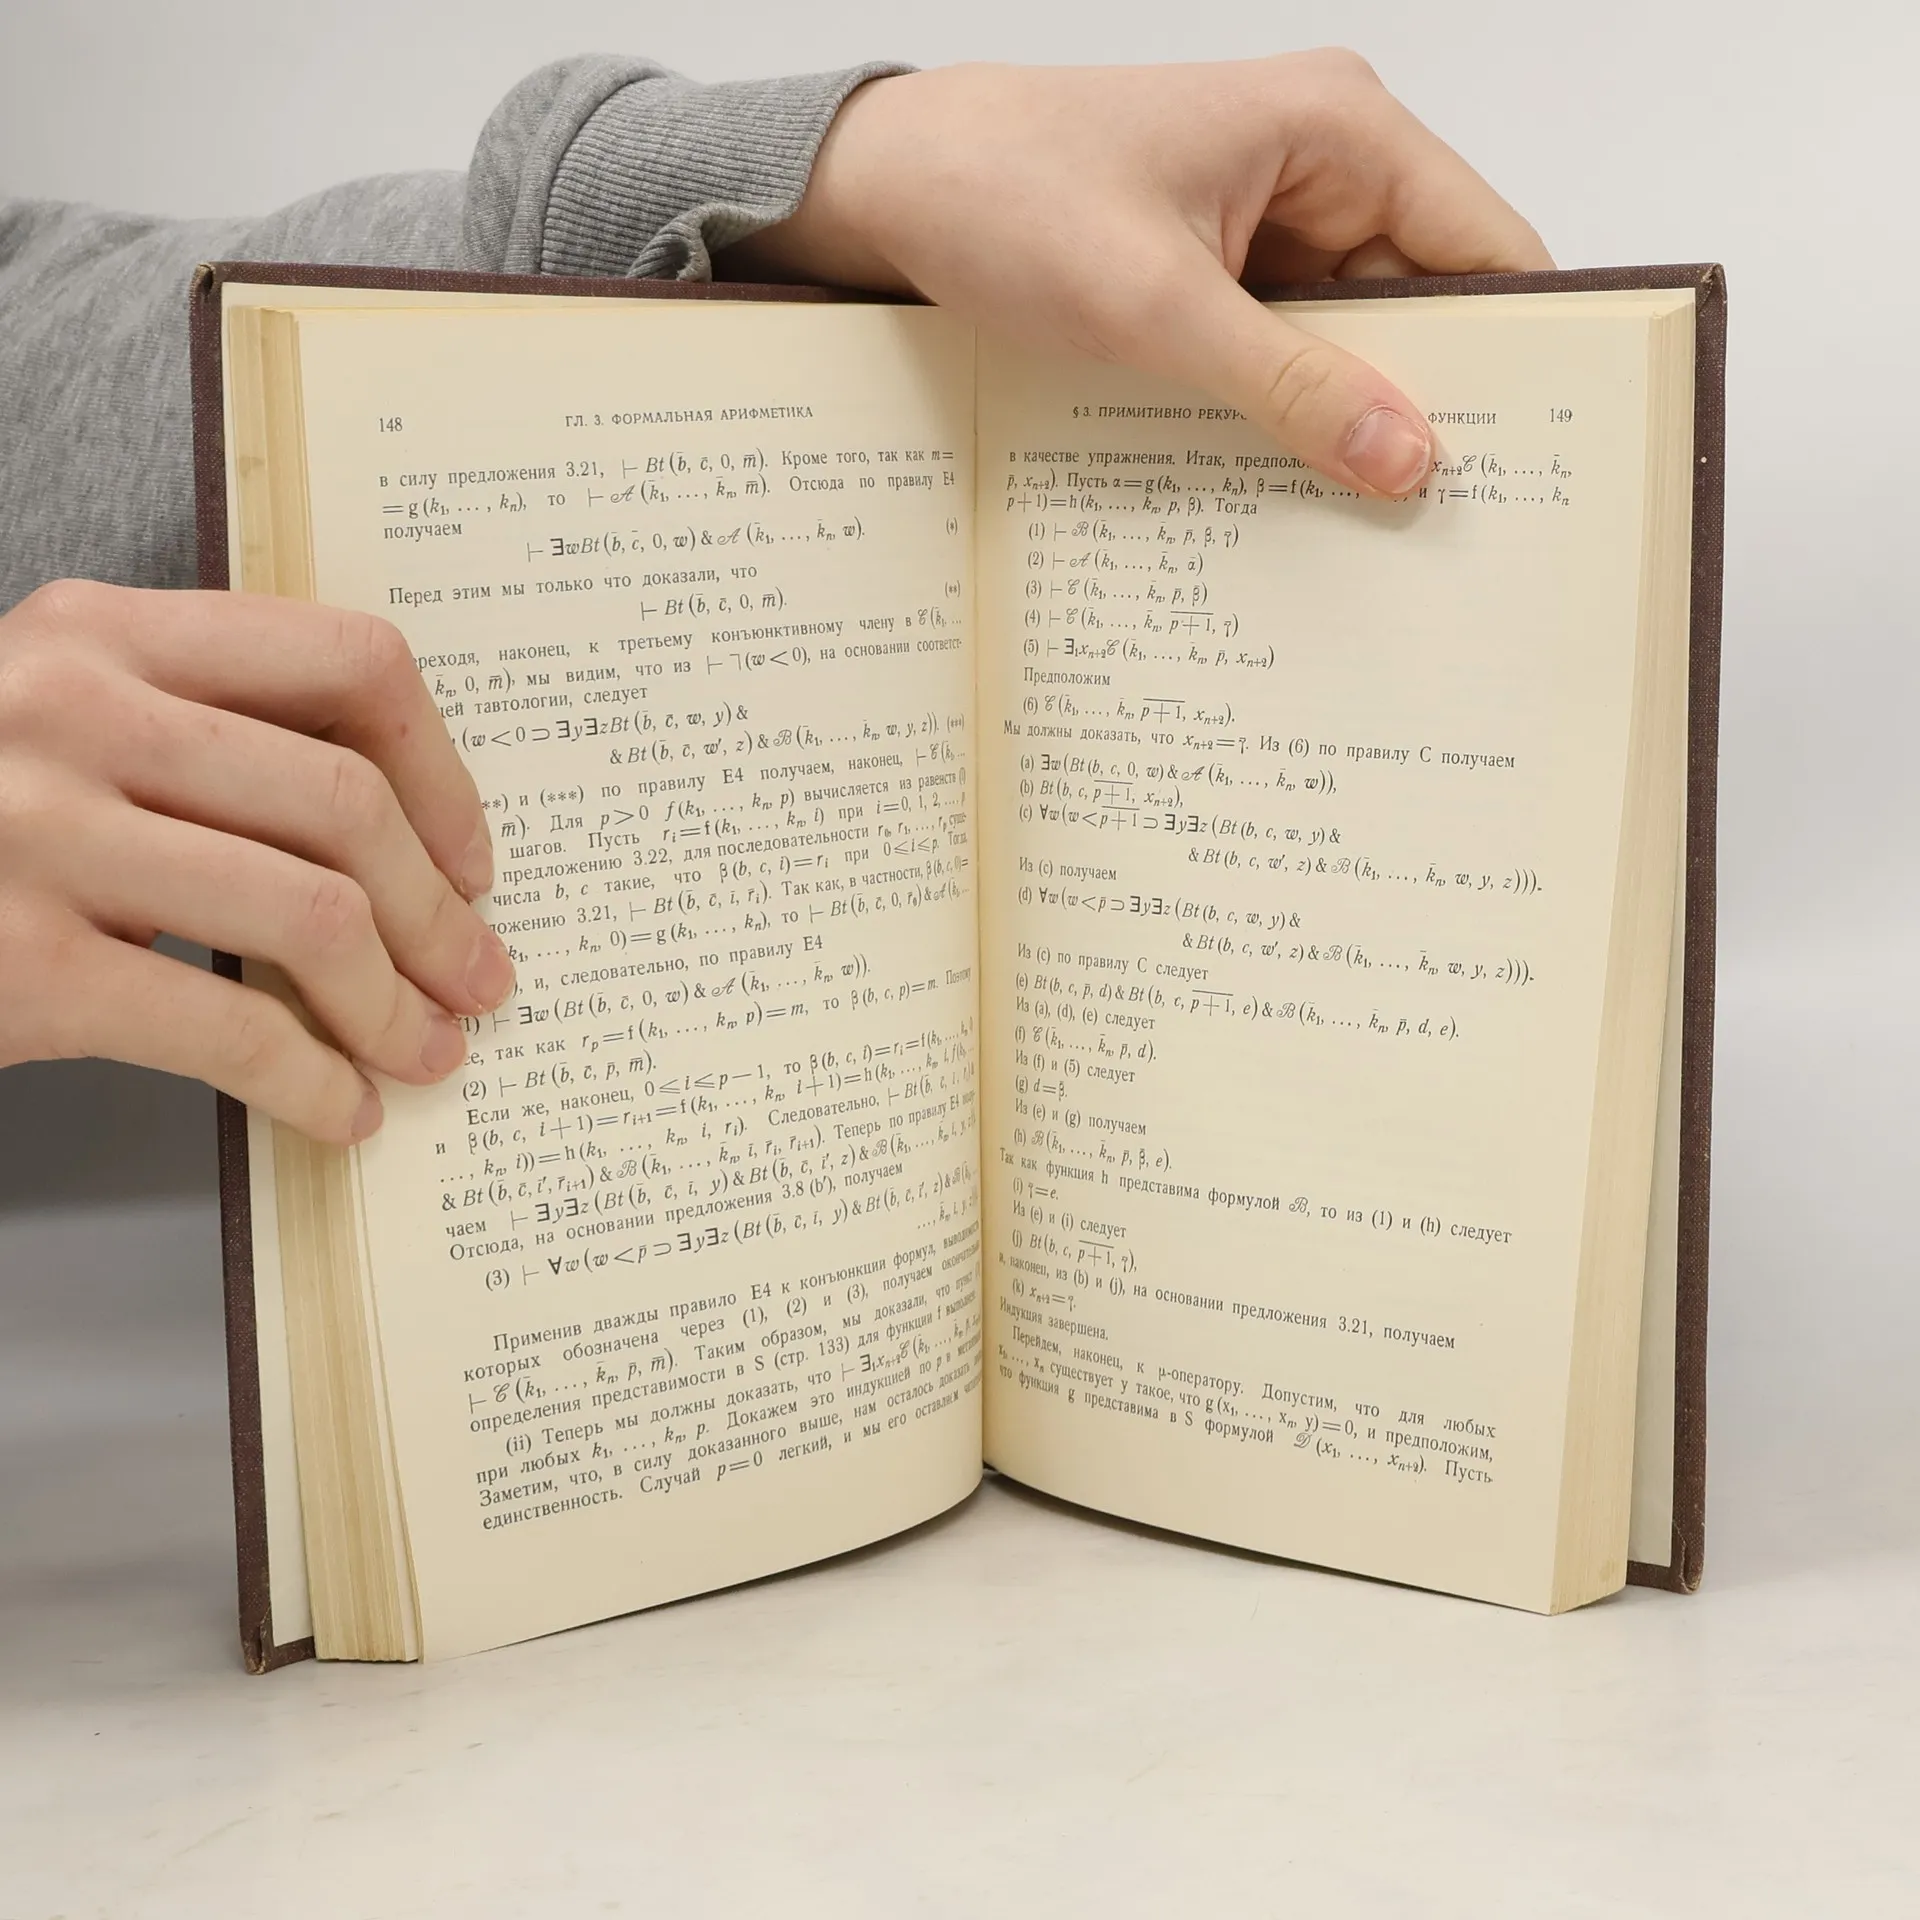 148 ГЛ. 3. ФОРМАЛЬНАЯ АРИФМЕТИКА
в силу предложения 3.21, ⊢ Bt (b̄, c̄, 0, m̄). Кроме того, так как m=
=g (k₁, ..., kₙ), то ⊢ 𝒜 (k̄₁, ..., k̄ₙ, m̄). Отсюда по правилу E4
получаем
⊢ ∃wBt (b̄, c̄, 0, w) & 𝒜 (k̄₁, ..., k̄ₙ, w). (*)
Перед этим мы только что доказали, что
⊢ Bt (b̄, c̄, 0, m̄). (**)
наконец, к третьему конъюнктивному члену в 𝒞 (k̄₁, ...
k̄ₙ, 0, m̄), мы видим, что из ⊢ ⅂ (w < 0), на основании соответст-
тавтологии, следует
(w < 0 ⊃ ∃y∃zBt (b̄, c̄, w, y) &
& Bt (b̄, c̄, w′, z) & ℬ (k̄₁, ..., k̄ₙ, w, y, z)). (***)
и (***) по правилу E4 получаем, наконец, ⊢ 𝒞 (k̄₁, ...
m̄). Для p > 0 f (k₁, ..., kₙ, p) вычисляется из равенств (I)
шагов. Пусть rᵢ = f (k₁, ..., kₙ, i) при i = 0, 1, 2, ..., p
предложению 3.22, для последовательности r₀, r₁, ..., rₚ
числа b, c такие, что β (b, c, i) = rᵢ при 0 ⩽ i ⩽ p. Тогда
3.21, ⊢ Bt (b̄, c̄, ī, r̄ᵢ). Так как, в частности, β (b, c, 0) =
k₁, ..., kₙ, 0) = g (k₁, ..., kₙ), то ⊢ Bt (b̄, c̄, 0, r̄₀) & 𝒜 (k̄₁, ...
и, следовательно, по правилу E4
1) ⊢ ∃w (Bt (b̄, c̄, 0, w) & 𝒜 (k̄₁, ..., k̄ₙ, w)).
так как rₚ = f (k₁, ..., kₙ, p) = m, то β (b, c, p) = m. Поэтому
(2) ⊢ Bt (b̄, c̄, p̄, m̄).
Если же, наконец, 0 ⩽ i ⩽ p — 1, то β (b, c, i) = rᵢ = f (k₁, ..., kₙ, i)
и β (b, c, i + 1) = rᵢ₊₁ = f (k₁, ..., kₙ, i + 1) = h (k₁, ..., kₙ, i, f (k₁, ...
..., kₙ, i)) = h (k₁, ..., kₙ, i, rᵢ). Следовательно, ⊢ Bt (b̄, c̄, ī, r̄ᵢ) &
& Bt (b̄, c̄, ī′, r̄ᵢ₊₁) & ℬ (k̄₁, ..., k̄ₙ, ī, r̄ᵢ, r̄ᵢ₊₁). Теперь по правилу E4
чаем ⊢ ∃y∃z (Bt (b̄, c̄, ī, y) & Bt (b̄, c̄, ī′, z) & ℬ (k̄₁, ..., k̄ₙ, ī, y, z)).
Отсюда, на основании предложения 3.8 (b′), получаем
(3) ⊢ ∀w (w < p̄ ⊃ ∃y∃z (Bt (b̄, c̄, ī, y) & Bt (b̄, c̄, ī′, z) & ℬ (k̄₁, ...
Применив дважды правило E4 к конъюнкции формул, выводимость
которых обозначена через (1), (2) и (3), получаем окончательно
⊢ 𝒞 (k̄₁, ..., k̄ₙ, p̄, m̄). Таким образом, мы доказали, что пункт
определения представимости в S (стр. 133) для функции f выполнен.
(ii) Теперь мы должны доказать, что ⊢ ∃₁xₙ₊₂𝒞 (k̄₁, ..., k̄ₙ, p̄,
при любых k₁, ..., kₙ, p. Докажем это индукцией по p в
Заметим, что, в силу доказанного выше, нам осталось доказать лишь
единственность. Случай p = 0 легкий, и мы его оставляем читателю
§ 3. ПРИМИТИВНО ФУНКЦИИ 149
в качестве упражнения. Итак, xₙ₊₂𝒞 (k̄₁, ..., k̄ₙ,
p̄, xₙ₊₂). Пусть α = g (k₁, ..., kₙ), β = f (k₁, ..., и γ = f (k₁, ..., kₙ
p + 1) = h (k₁, ..., kₙ, p, β). Тогда
(1) ⊢ ℬ (k̄₁, ..., k̄ₙ, p̄, β̄, γ̄)
(2) ⊢ 𝒜 (k̄₁, ..., k̄ₙ, ᾱ)
(3) ⊢ 𝒞 (k̄₁, ..., k̄ₙ, p̄, β̄)
(4) ⊢ 𝒞 (k̄₁, ..., k̄ₙ, p̅+̅1̅, γ̄)
(5) ⊢ ∃₁xₙ₊₂𝒞 (k̄₁, ..., k̄ₙ, p̄, xₙ₊₂)
Предположим
(6) 𝒞 (k̄₁, ..., k̄ₙ, p̅+̅1̅, xₙ₊₂).
Мы должны доказать, что xₙ₊₂ = γ̄. Из (6) по правилу C получаем
(a) ∃w (Bt (b, c, 0, w) & 𝒜 (k̄₁, ..., k̄ₙ, w)),
(b) Bt (b, c, p̅+̅1̅, xₙ₊₂),
(c) ∀w (w < p̅+̅1̅ ⊃ ∃y∃z (Bt (b, c, w, y) &
& Bt (b, c, w′, z) & ℬ (k̄₁, ..., k̄ₙ, w, y, z))).
Из (c) получаем
(d) ∀w (w < p̄ ⊃ ∃y∃z (Bt (b, c, w, y) &
& Bt (b, c, w′, z) & ℬ (k̄₁, ..., k̄ₙ, w, y, z))).
Из (c) по правилу C следует
(e) Bt (b, c, p̄, d) & Bt (b, c, p̅+̅1̅, e) & ℬ (k̄₁, ..., k̄ₙ, p̄, d, e).
Из (a), (d), (e) следует
(f) 𝒞 (k̄₁, ..., k̄ₙ, p̄, d).
Из (f) и (5) следует
(g) d = β̄.
Из (e) и (g) получаем
(h) ℬ (k̄₁, ..., k̄ₙ, p̄, β̄, e).
Так как функция h представима формулой ℬ, то из (1) и (h) следует
(i) γ̄ = e.
Из (e) и (i) следует
(j) Bt (b, c, p̅+̅1̅, γ̄),
и, наконец, из (b) и (j), на основании предложения 3.21, получаем
(k) xₙ₊₂ = γ̄.
Индукция завершена.
Перейдем, наконец, к μ-оператору. Допустим, что для любых
x₁, ..., xₙ существует y такое, что g (x₁, ..., xₙ, y) = 0, и предположим,
что функция g представима в S формулой 𝒟 (x₁, ..., xₙ₊₂). Пусть